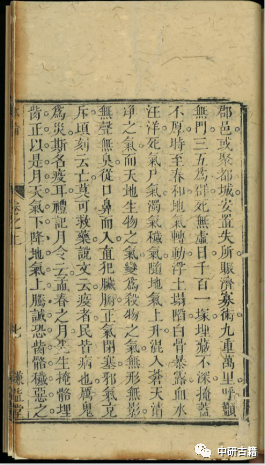 郡邑或聚都城安置失所賑濟寡術九重萬里呼籲
無門三五爲群死無虛日千百一塚埋藏不深掩蓋
不厚時至春和地氣轉動浮土塌陷白骨暴露血水
汪洋死氣尸氣濁氣穢氣隨地氣上升混入蒼天清
淨之氣而天地生物之氣變爲殺物之氣無形無影
無聲無臭從口鼻而入直犯臟腑正氣閉塞邪氣充
斥頃刻云亡莫可救藥說文云疫者民皆病也厲鬼
爲災斯名疫耳禮記月令云孟春之月先王掩骼埋
胔正以是月天氣下降地氣上騰誠恐胔骼穢惡之
卷之上
中研古籍